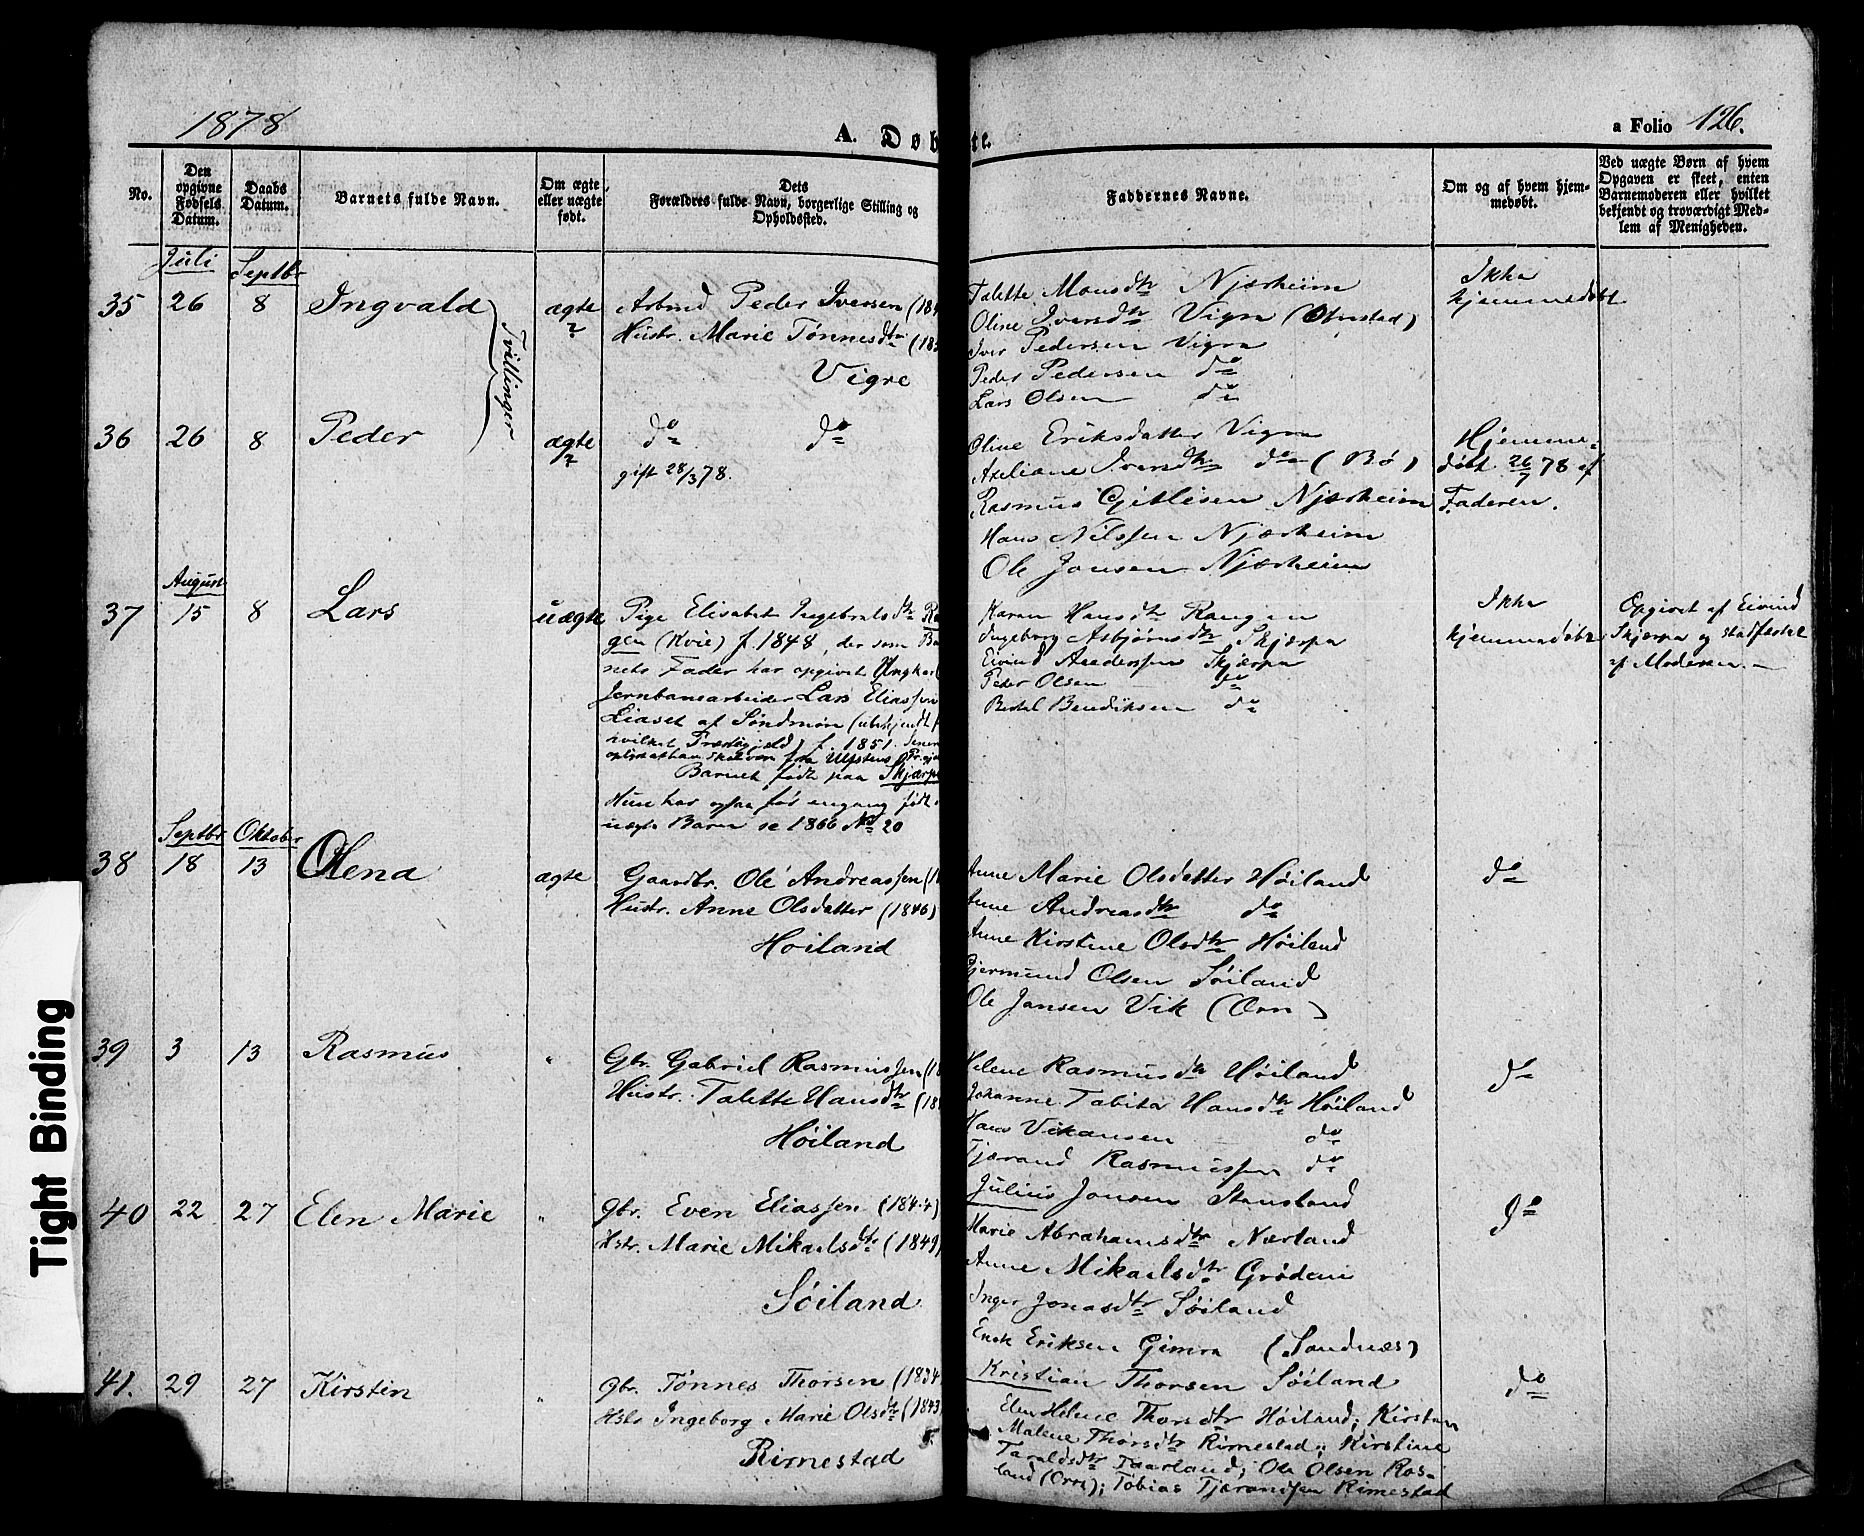 1878
A. Døb te.
a Folio 126.
No.
Den opgivne Fødsels Datum.
Daabs Datum.
Barnets fulde Navn.
Om ægte eller uægte født.
Dets Forældres fulde Navn, borgerlige Stilling og Opholdssted.
Faddernes Navne.
Om og af hvem hjemmedøbt.
Ved uægte Børn af hvem Opgaven er skeet, enten Barnemoderen eller hvilket bekjendt og troværdigt Medlem af Menigheden.
Juli Septbr
35 26 8 Ingvald ægte
Tvillinger
Arbmd Peder Iversen (184
Hustr. Marie Tønnesdtr (18
Vigre
Talette Monsdtr Njærheim
Oline Iversdtr Vigre (Obrestad)
Iver Pedersen Vigre
Peder Pedersen do
Lars Olsen do
Ikke
hjemmedøbt
36 26 8 Peder ægte
do do
gift 28/3 78.
Oline Eriksdatter Vigre
Axeliane Iversdtr do (Bø)
Rasmus Gitlesen Njærheim
Hans Nilssen Njærheim
Ole Jonsen Njærheim
Hjemme-
døbt 26/7 78 af
Faderen.
August
37 15 8 Lars uægte
Pige Elisabet Ingebretsdtr
gen (Kvie) f. 1848, der som Ba
nets Fader har opgivet Ungkarl
Jernbanearbeider Lars Eliassen
Liaset af Søndmør (ubekjendt
hvilket Præstegjæld) f. 1851. Senere
oplyst at han skal være fra Ulfstens Pr.gj
Barnet født paa Skjærpe
Hun har ogsaa før engang født
uægte Barn se 1866 No 20
Karen Hansdtr Rangen
Ingeborg Asbjørnsdtr Skjærpe
Eivind Anderssen Skjærpe
Peder Olsen do
Bertel Bendiksen do
Ikke
hjemmedøbt
Opgivet af Eivind
Skjærpe og stadfæstet
af Moderen.
Septbr Oktober
38 18 13 Olena ægte
Gaardbr. Ole Andreassen (1
Hustr. Anne Olsdatter (1846)
Høiland
Anne Marie Olsdatter Høiland
Anne Andreasdtr do
Anne Kirstine Olsdtr Høiland
Gjermund Olsen Søiland
Ole Jansen Vik (Orre)
do
39 3 13 Rasmus "
Gbr. Gabriel Rasmussen (1
Hustr. Talette Hansdtr (18
Høiland
Helene Rasmusdtr Høiland
Johanne Tabita Hansdtr Høiland
Hans Vikansen do
Tjærand Rasmussen do
Julius Jonsen Stangeland
do
40 22 27 Elen Marie "
gbr. Even Eliassen (1844)
Hstr. Marie Mikaelsdtr (1849)
Søiland
Marie Abrahamsdtr Nærland
Anne Mikaelsdtr Grødem
Inger Jonasdtr Søiland
Enok Eriksen Gimra (Sandnæs)
Kristian Thorsen Søiland
do
41. 29 27 Kirstin "
gbr. Tønnes Thorsen (1834
Hstr Ingeborg Marie Olsdtr (1843)
Rimestad
Elen Helene Thorsdtr Høiland; Kirsten
Malene Thorsdtr Rimestad; Kirstine
Taraldsdtr Taarland; Ole Olsen Ros-
land (Orre); Tobias Tjærandsen Rimestad
do
Tight Binding